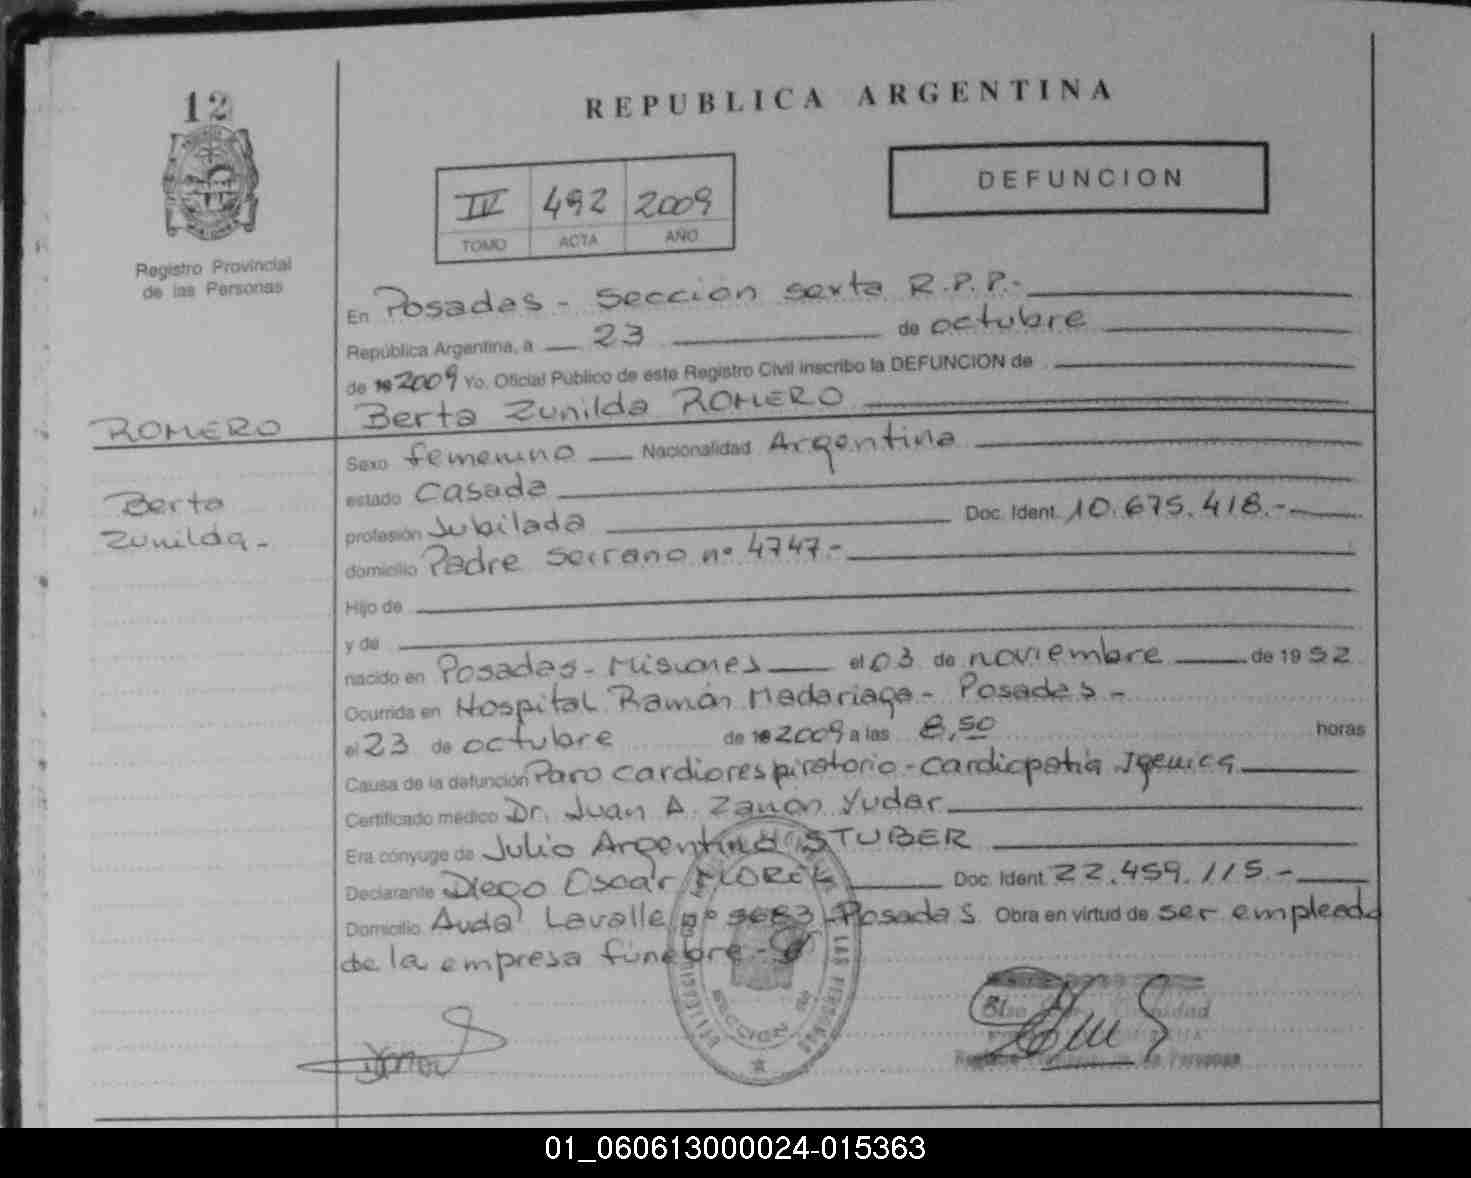 12
REPUBLICA ARGENTINA
DEFUNCION
IV 492 2009
TOMO ACTA AÑO
Registro Provincial
de las Personas
En Posadas - Sección sexta R.P.P.-
República Argentina, a 23 de octubre
de 19 2009 Yo. Oficial Público de este Registro Civil inscribo la DEFUNCION de
Berta Zunilda ROMERO
ROMERO
Berta
Zunilda.-
Sexo femenino Nacionalidad Argentina
estado Casada
profesión Jubilada Doc. Ident. 10.675.418.-
domicilio Padre Serrano nº 4747.-
Hijo de
y de
nacido en Posadas - Misiones el 03 de noviembre de 1952
Ocurrida en Hospital Ramón Madariaga - Posadas -
el 23 de octubre de 19 2009 a las 8,50 horas
Causa de la defunción Paro cardiorespiratorio - cardiopatia Iqemica
Certificado médico Dr. Juan A. Zanon Yudar
Era cónyuge de Julio Argentino STUBER
Declarante Diego Oscar Doc. Ident. 22.459.115.-
Domicilio Avda Lavalle nº 3683 - Posadas Obra en virtud de ser empleado
de la empresa fúnebre -
SECCION
LAS PERSONAS
de las Personas
01_060613000024-015363